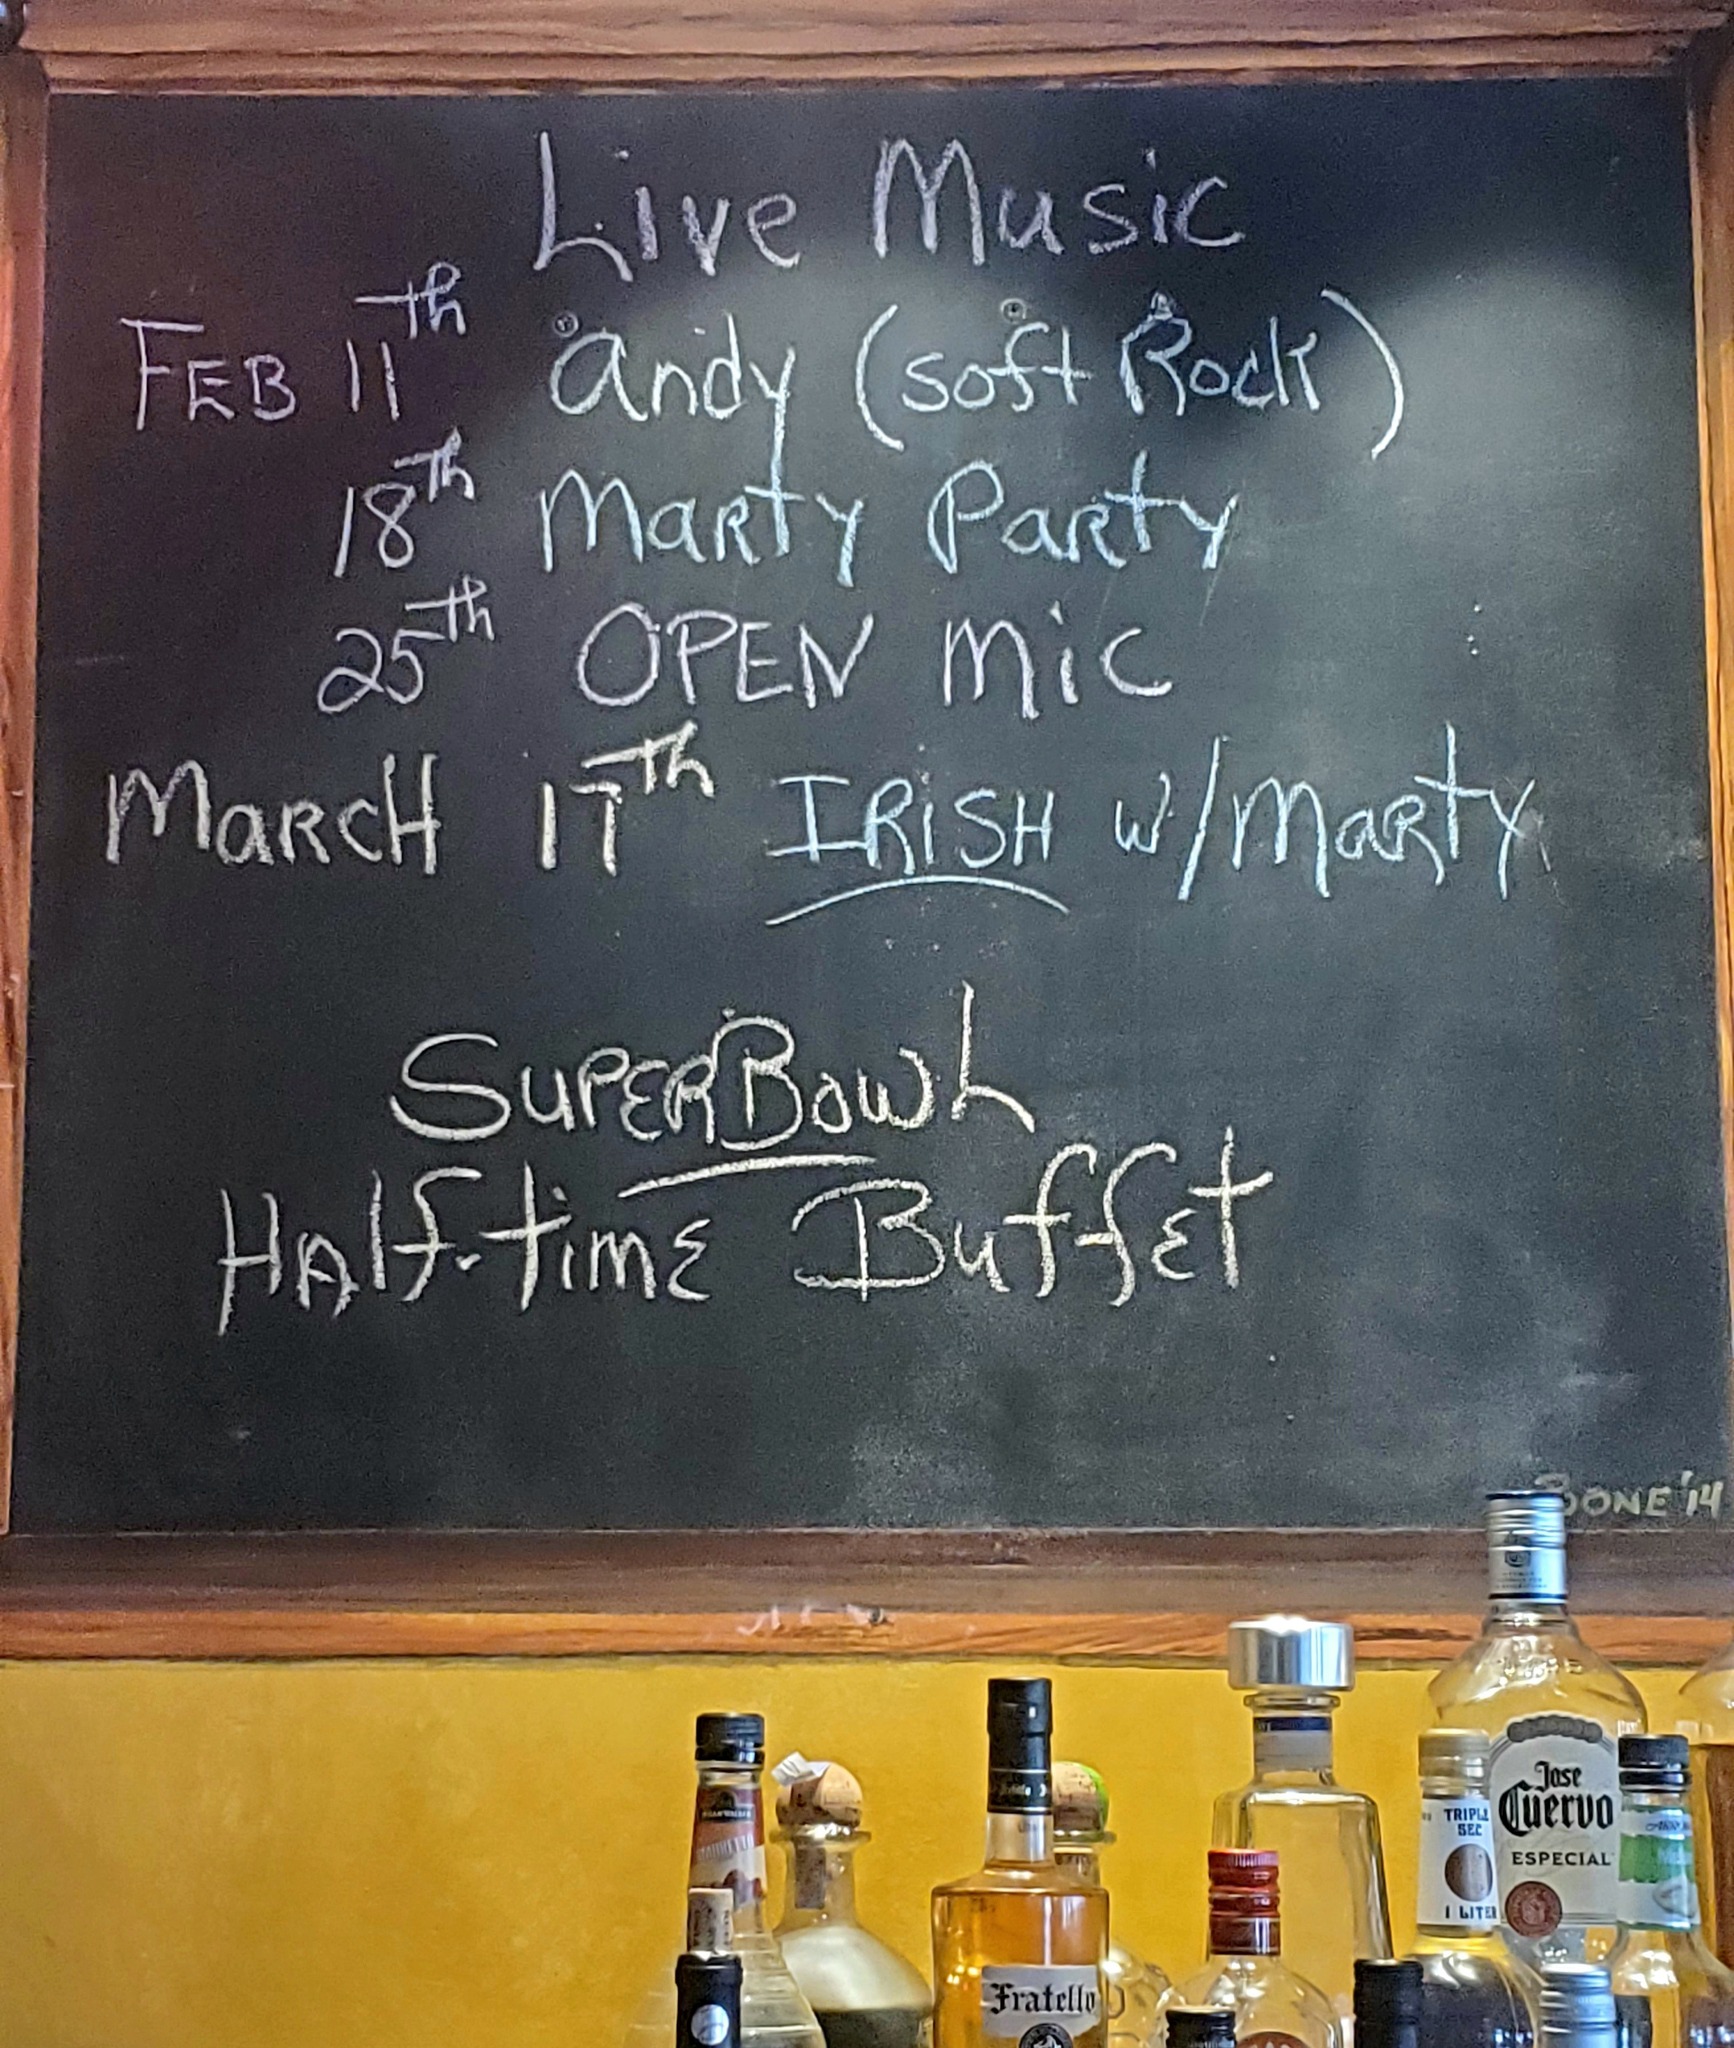 Live Music
FEB 11th Andy (soft Rock)
18th Marty Party
25th OPEN Mic
MARCH 17th IRISH w/Marty
SUPERBowL
HAlf-time Buffet
BOONE '14
Jose
Cuervo
ESPECIAL
TRIPLE
SEC
1 LITER
Fratello